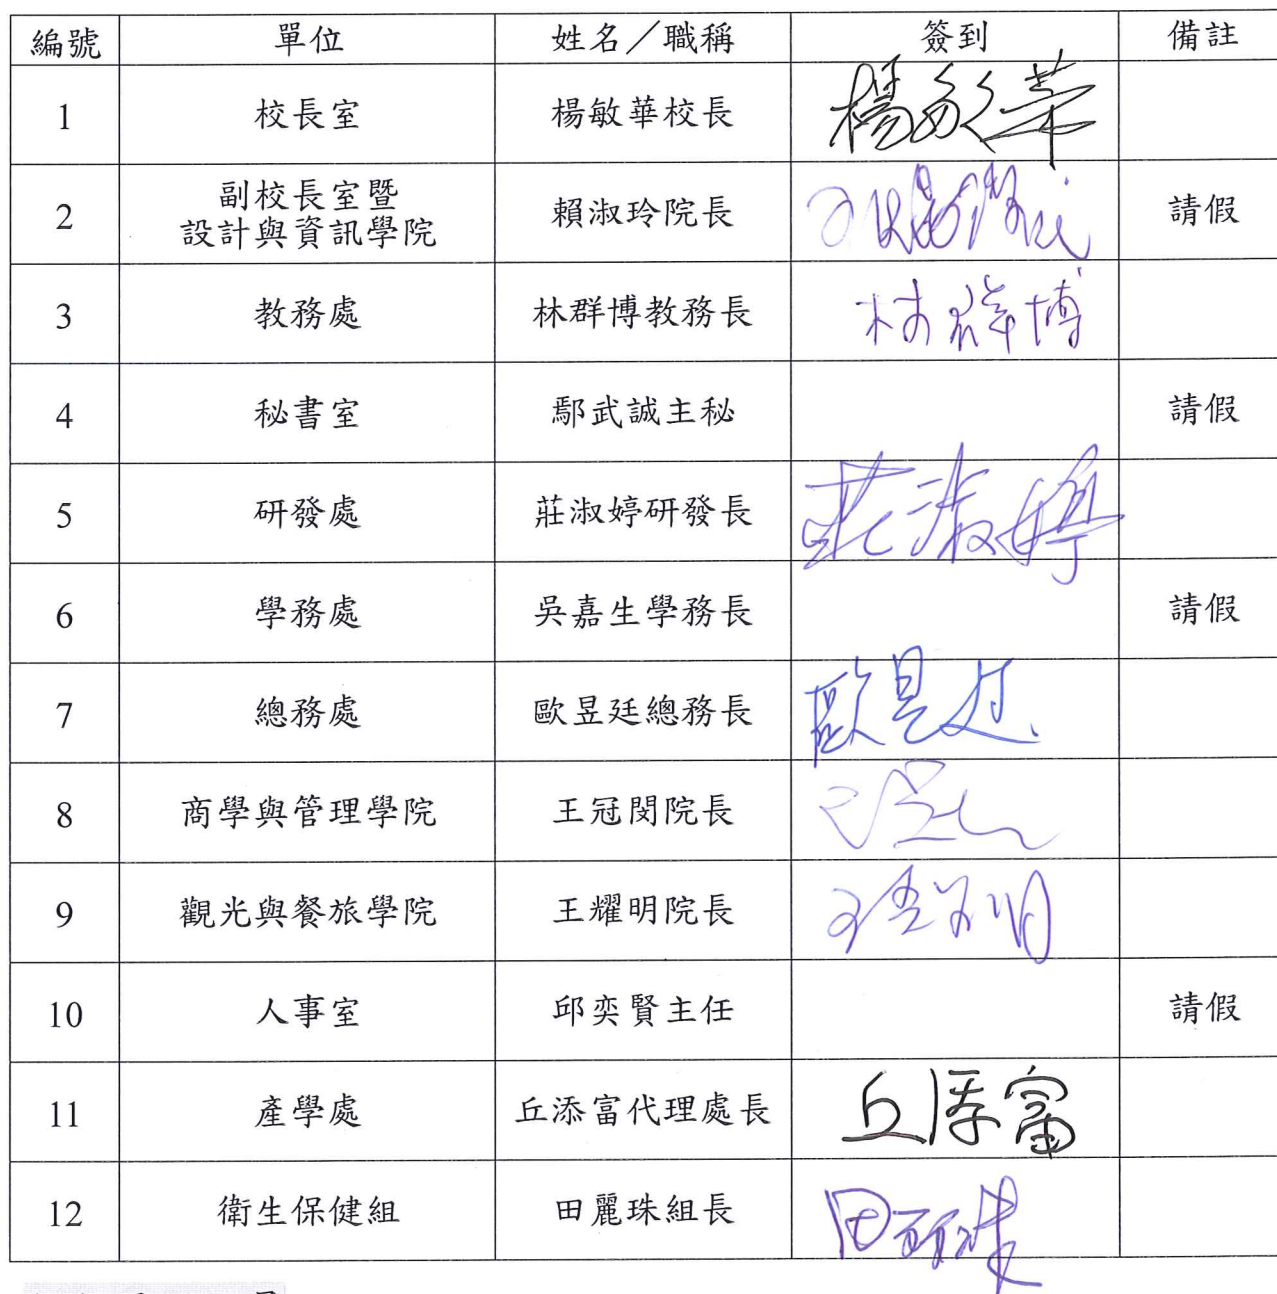 編號 單位 姓名／職稱 簽到 備註
1 校長室 楊敏華校長 楊敏華
2 副校長室暨 設計與資訊學院 賴淑玲院長 請假
3 教務處 林群博教務長 林群博
4 秘書室 鄢武誠主秘 請假
5 研發處 莊淑婷研發長 莊淑婷
6 學務處 吳嘉生學務長 請假
7 總務處 歐昱廷總務長 歐昱廷
8 商學與管理學院 王冠閔院長
9 觀光與餐旅學院 王耀明院長 王耀明
10 人事室 邱奕賢主任 請假
11 產學處 丘添富代理處長 丘添富
12 衛生保健組 田麗珠組長 田麗珠